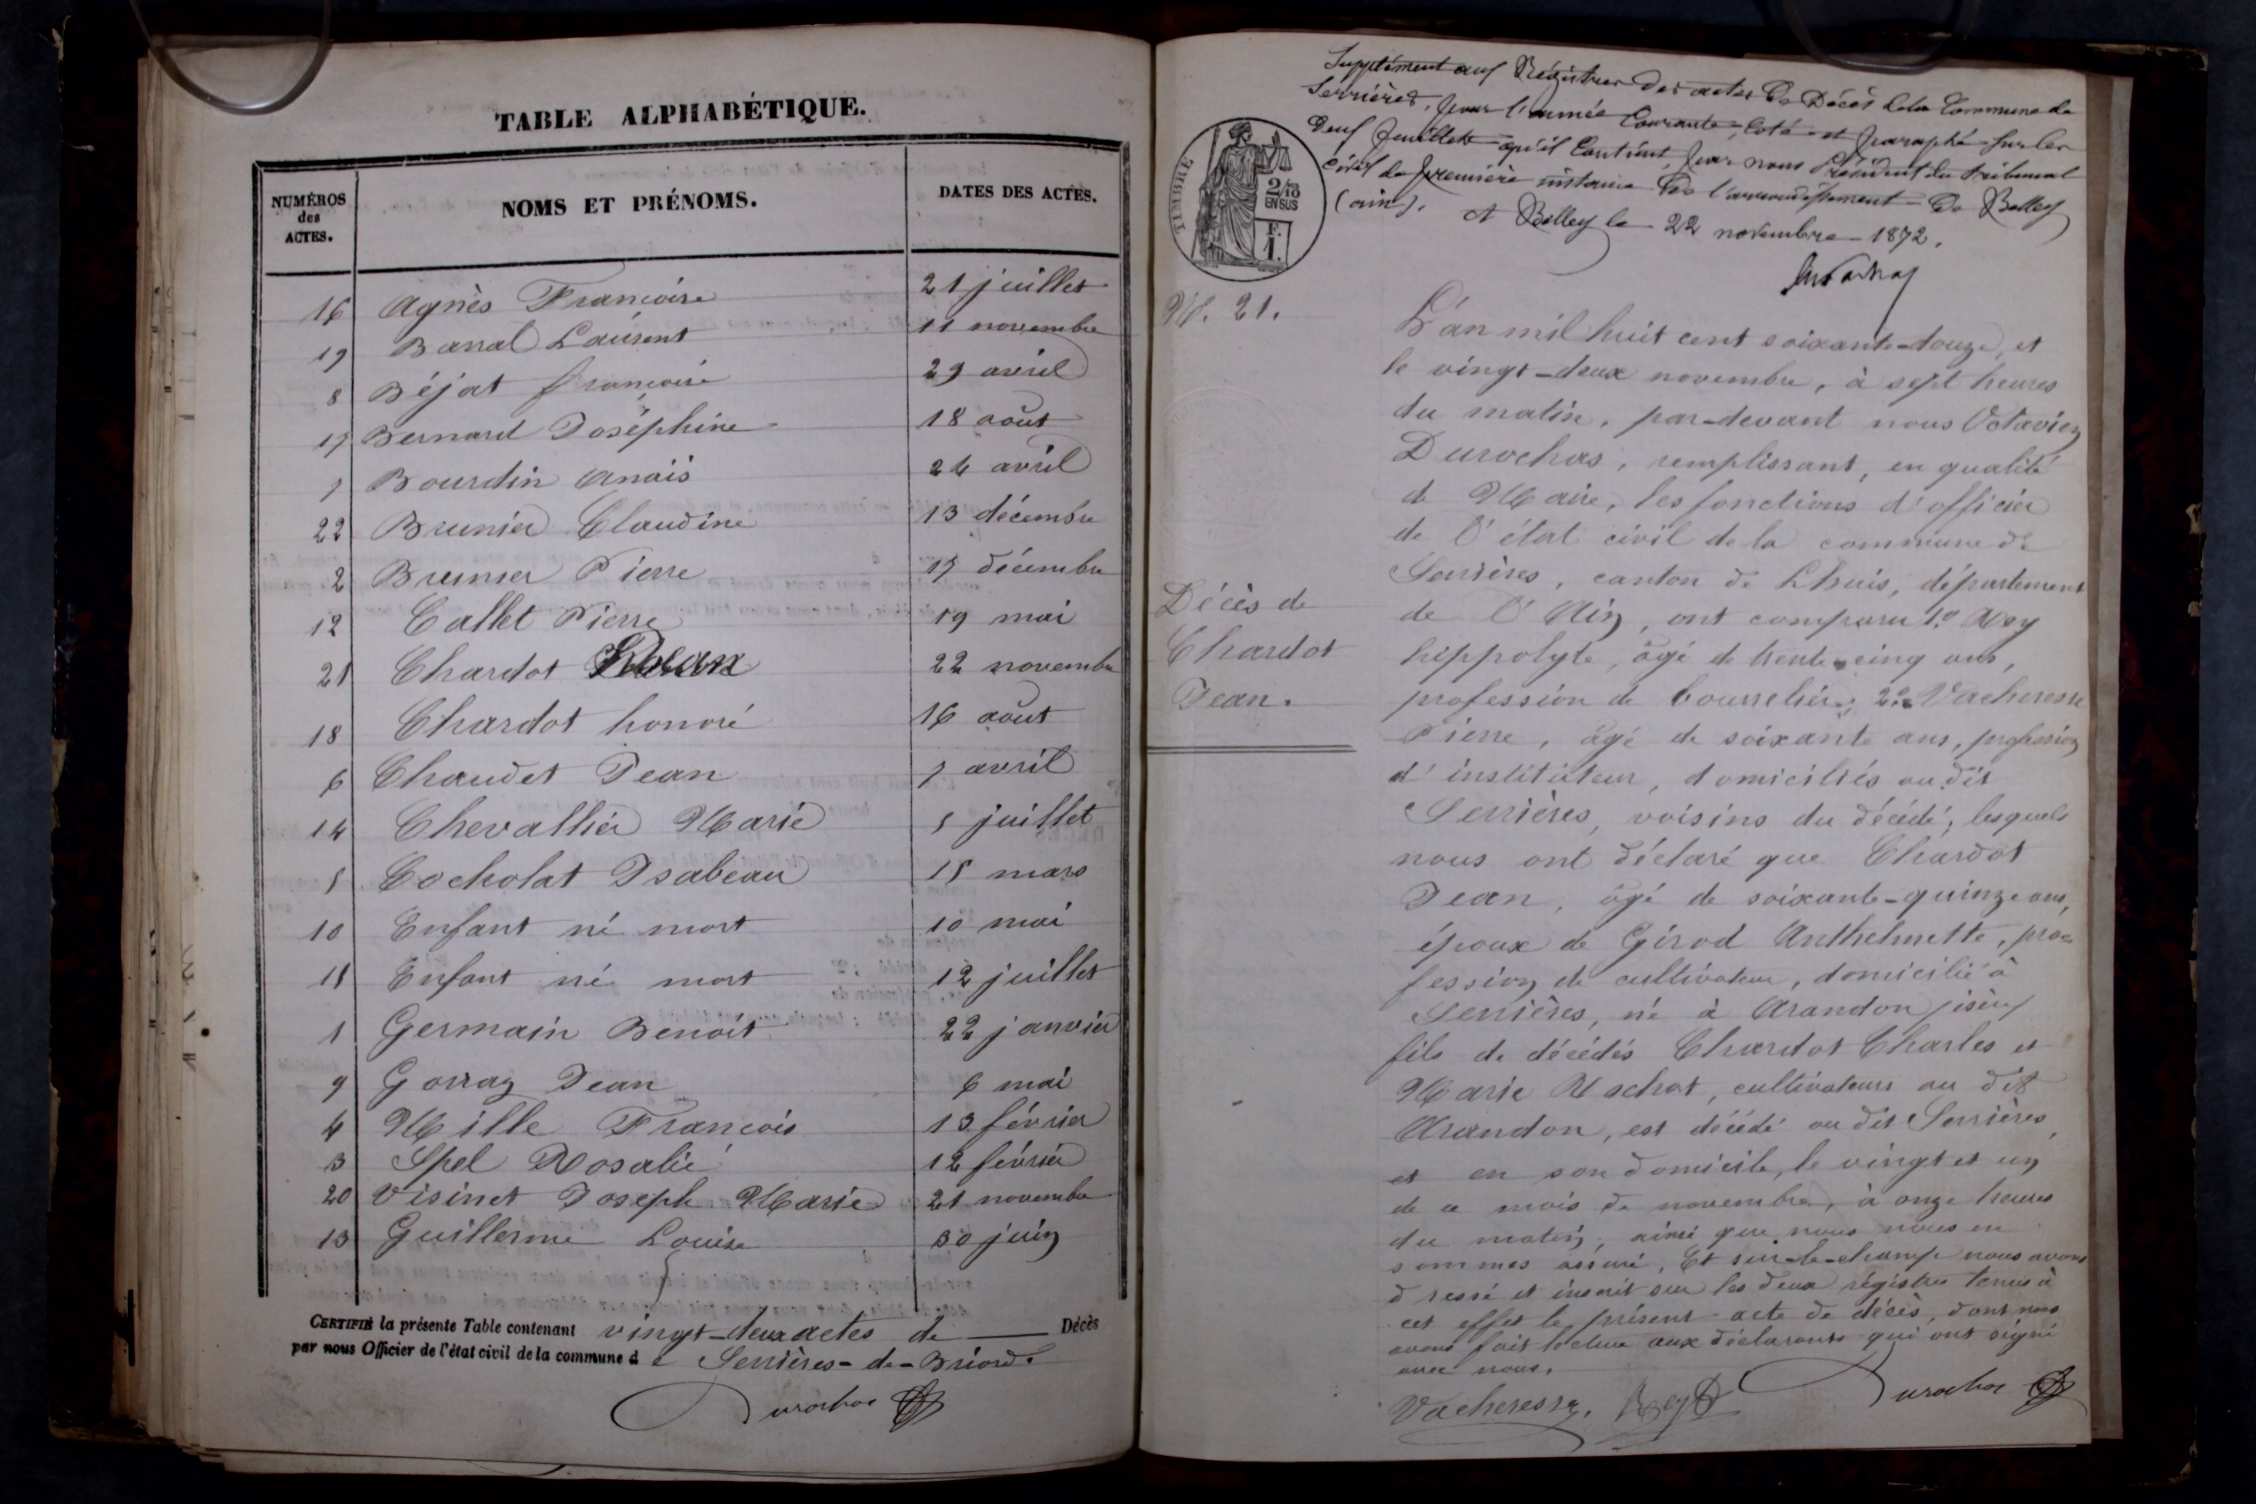 TABLE ALPHABÉTIQUE.
NUMÉROS des ACTES. NOMS ET PRÉNOMS. DATES DES ACTES.
16 Agnès Françoise 21 juillet
19 Barral Laurent 11 novembre
8 Béjat françoise 29 avril
17 Bernard Joséphine 18 août
7 Bourdin Anaïs 24 avril
22 Brunier Claudine 13 décembre
2 Brunier Pierre 17 décembre
12 Callet Pierre 19 mai
21 Chardot Jean 22 novembre
18 Chardot honoré 16 août
6 Chaudet Jean 7 avril
14 Chevallier Marie 5 juillet
5 Cocholat Isabeau 15 mars
10 Enfant né mort 10 mai
15 Enfant né mort 12 juillet
1 Germain Benoit 22 janvier
9 Gorraz Jean 6 mai
4 Mille François 13 février
3 Spel Rosalie 12 février
20 Visinet Joseph Marie 21 novembre
13 Guillerme Louise 30 juin
CERTIFIÉ la présente Table contenant vingt-deux actes de Décès
par nous Officier de l'état civil de la commune de Serrières-de-Briord.
Durochas
Supplément aux Régistres des actes de Décès de la Commune de
Serrières, pour l'année courante, coté et paraphé sur les
deux feuillets qu'il contient, par nous Président du Tribunal
Civil de première instance de l'arrondissement de Belley
(ain). A Belley le 22 novembre 1872.
TIMBRE
2/10
EN SUS
F.
1.
N°. 21.
Décès de
Chardot
Jean.
L'an mil huit cent soixante-douze, et
le vingt-deux novembre, à sept heures
du matin, par-devant nous Octavien
Durochas, remplissant, en qualité
de Maire, les fonctions d'officier
de l'état civil de la commune de
Serrières, canton de Lhuis, département
de l'Ain, ont comparu 1.° Rey
hippolyte, âgé de trente-cinq ans,
profession de bourrelier; 2.° Vacheresse
Pierre, âgé de soixante ans, profession
d'instituteur, domiciliés au dit
Serrières, voisins du décédé; lesquels
nous ont déclaré que Chardot
Jean, âgé de soixante-quinze ans,
époux de Girod Anthelmette, pro=
fession de cultivateur, domicilié à
Serrières, né à Arandon (isère)
fils de décédés Chardot Charles et
Marie Machat, cultivateurs au dit
Arandon, est décédé au dit Serrières,
et en son domicile, le vingt et un
de ce mois de novembre, à onze heures
du matin, ainsi que nous nous en
sommes assuré, Et sur-le-champ nous avons
dressé et inscrit sur les deux régistres tenus à
cet effet le présent acte de décès, dont nous
avons fait lecture aux déclarants qui ont signé
avec nous.
Vacheresse. Rey Durochas